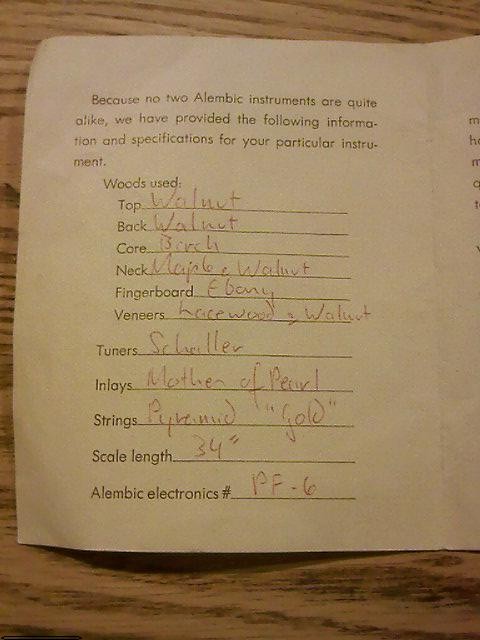 Because no two Alembic instruments are quite
alike, we have provided the following informa-
tion and specifications for your particular instru-
ment.
Woods used:
Top Walnut
Back Walnut
Core Birch
Neck Maple & Walnut
Fingerboard Ebony
Veneers Lacewood & Walnut
Tuners Schaller
Inlays Mother of Pearl
Strings Pyramid "Gold"
Scale length 34"
Alembic electronics # PF-6